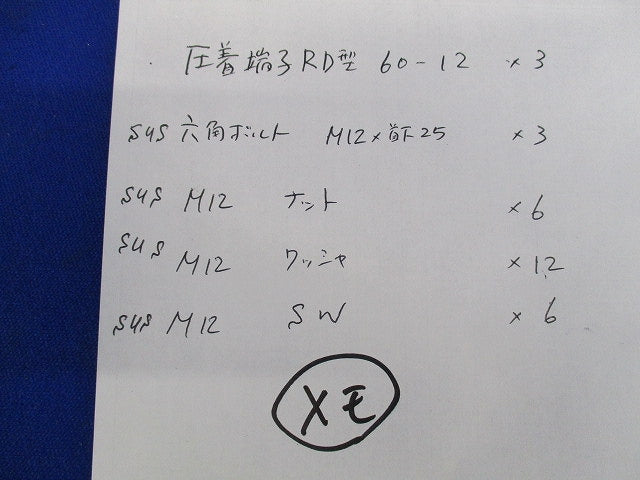 ・ 圧着端子RD型 60-12 ×3
SUS 六角ボルト M12×首下25 ×3
SUS M12 ナット ×6
SUS M12 ワッシャ ×12
SUS M12 SW ×6
メモ